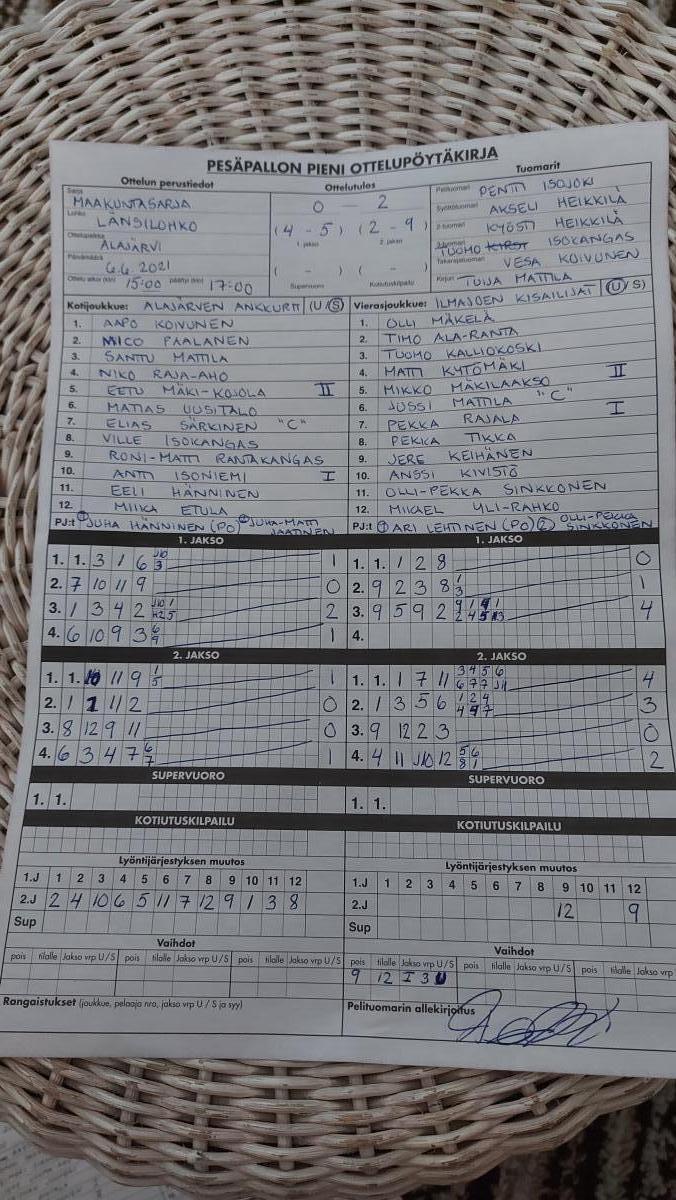 PESÄPALLON PIENI OTTELUPÖYTÄKIRJA
Ottelun perustiedot
Sarja MAAKUNTASARJA
Lohko LÄNSILOHKO
Ottelupaikka ALAJÄRVI
Päivämäärä 6.6.2021
Ottelu alkoi (klo) 15:00 päättyi (klo) 17:00
Ottelutulos
0 — 2
(4 - 5) (2 - 9)
1. jakso 2. jakso
( - ) ( - )
Supervuoro Kotiutuskilpailu
Tuomarit
Pelituomari PENTTI ISOJOKI
Syöttötuomari AKSELI HEIKKILÄ
2-tuomari KYÖSTI HEIKKILÄ
3-tuomari TUOMO ISOKANGAS
Takarajatuomari VESA KOIVUNEN
Kirjuri TUIJA MATTILA
Kotijoukkue: ALAJÄRVEN ANKKURIT (U/S)
1. AAPO KOIVUNEN
2. MICO PAALANEN
3. SANTTU MATTILA
4. NIKO RAJA-AHO
5. EETU MÄKI-KOJOLA II
6. MATIAS UUSITALO
7. ELIAS SÄRKINEN "C"
8. VILLE ISOKANGAS
9. RONI-MATTI RANTAKANGAS
10. ANTTI ISONIEMI I
11. EELI HÄNNINEN
12. MIIKA ETULA
PJ:t 1 JUHA HÄNNINEN (PO) 2 JUHA-MATTI JAATINEN
Vierasjoukkue: ILMAJOEN KISAILIJAT (U/S)
1. OLLI MÄKELÄ
2. TIMO ALA-RANTA
3. TUOMO KALLIOKOSKI
4. MATTI KYTÖMÄKI II
5. MIKKO MÄKILAAKSO
6. JUSSI MATTILA "C"
7. PEKKA RAJALA I
8. PEKKA TIKKA
9. JERE KEIHÄNEN
10. ANSSI KIVISTÖ
11. OLLI-PEKKA SINKKONEN
12. MIKAEL YLI-RAHKO
PJ:t 1 ARI LEHTINEN (PO) 2 OLLI-PEKKA SINKKONEN
1. JAKSO
1. 1. 3 1 6 J10 3 1
2. 7 10 11 9 0
3. 1 3 4 2 2
4. 6 10 9 3 6 9 1
1. JAKSO
1. 1. 1 2 8 0
2. 9 2 3 8 1 3 1
3. 9 5 9 2 4
4.
2. JAKSO
1. 1. 11 9 1 5 1
2. 1 1 11 2 0
3. 8 12 9 11 0
4. 6 3 4 7 6 7 1
2. JAKSO
1. 1. 1 7 11 3 4 5 6 6 7 7 J11 4
2. 1 3 5 6 1 2 4 3
3. 9 12 2 3 0
4. 4 11 J10 12 5 6 8 1 2
SUPERVUORO
1. 1.
SUPERVUORO
1. 1.
KOTIUTUSKILPAILU
KOTIUTUSKILPAILU
Lyöntijärjestyksen muutos
1.J 1 2 3 4 5 6 7 8 9 10 11 12
2.J 2 4 10 6 5 11 7 12 9 1 3 8
Sup
Lyöntijärjestyksen muutos
1.J 1 2 3 4 5 6 7 8 9 10 11 12
2.J 12 9
Sup
Vaihdot
pois tilalle Jakso vrp U/S pois tilalle Jakso vrp U/S pois tilalle Jakso vrp U/S
Vaihdot
pois tilalle Jakso vrp U/S pois tilalle Jakso vrp U/S pois tilalle Jakso vrp U/S
9 12 I 3 U
Rangaistukset (joukkue, pelaaja nro, jakso vrp U / S ja syy)
Pelituomarin allekirjoitus